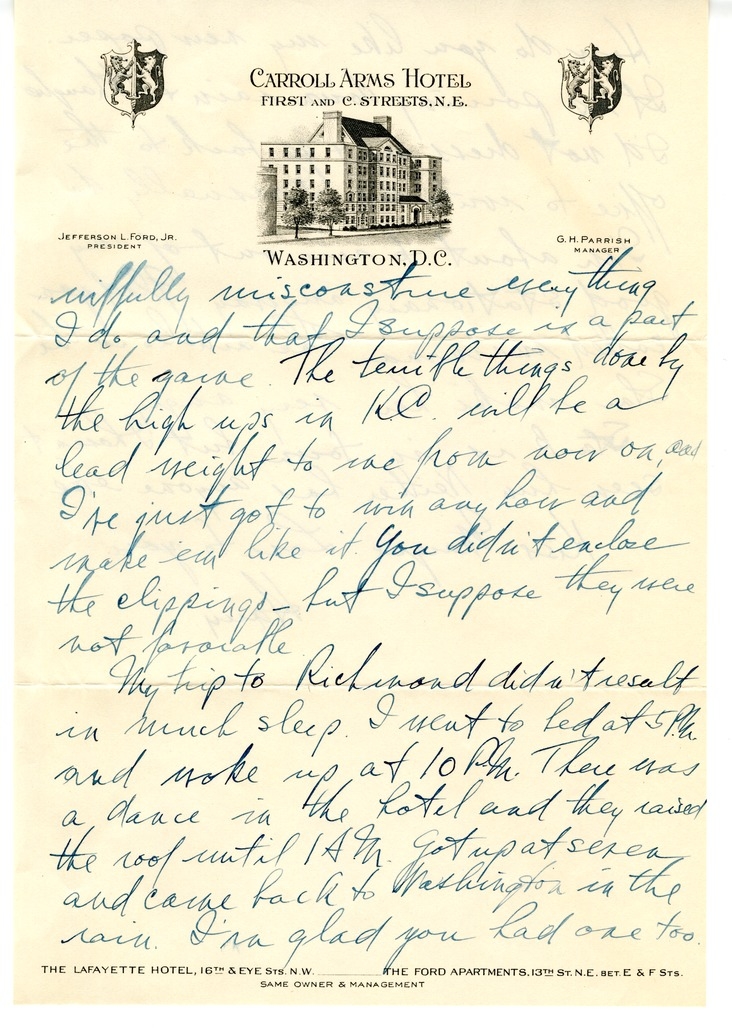 CARROLL ARMS HOTEL
FIRST AND C. STREETS, N.E.
JEFFERSON L. FORD, JR.
PRESIDENT
G. H. PARRISH
MANAGER
WASHINGTON, D.C.
wilfully misconstrue everything
I do and that I suppose is a part
of the game. The terrible things done by
the high ups in K.C. will be a
lead weight to me from now on, and
I've just got to win anyhow and
make em like it. You didn't enclose
the clippings - but I suppose they were
not favorable.
My trip to Richmond didn't result
in much sleep. I went to bed at 5 P.M.
and woke up at 10 P.M. There was
a dance in the hotel and they raised
the roof until 1 A.M. Got up at seven
and came back to Washington in the
rain. I'm glad you had one too.
THE LAFAYETTE HOTEL, 16TH & EYE STS. N.W. THE FORD APARTMENTS, 13TH ST. N.E. BET. E & F STS.
SAME OWNER & MANAGEMENT